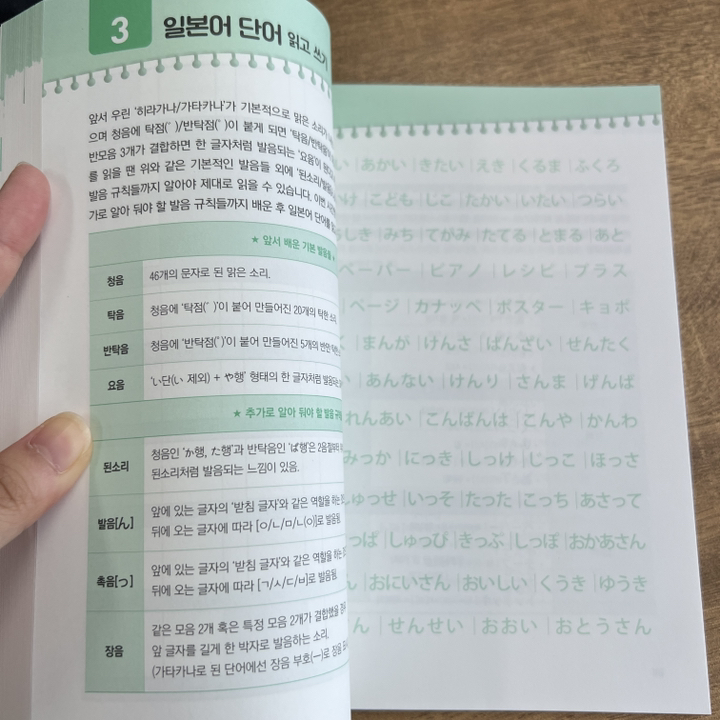 3 일본어 단어 읽고 쓰기
앞서 우린 '히라가나/가타카나'가 기본적으로 맑은 소리가
으며 청음에 탁점(゛)/반탁점(゜)이 붙게 되면 '탁음/반탁음
반모음 3개가 결합하면 한 글자처럼 발음되는 '요음'이
를 읽을 땐 위와 같은 기본적인 발음들 외에 '된소리/발음
발음 규칙들까지 알아야 제대로 읽을 수 있습니다. 이번
가로 알아 둬야 할 발음 규칙들까지 배운 후 일본어 단어를
★ 앞서 배운 기본 발음들 ★
청음 46개의 문자로 된 맑은 소리.
탁음 청음에 '탁점(゛)'이 붙어 만들어진 20개의 탁한 소리
반탁음 청음에 '반탁점(゜)'이 붙어 만들어진 5개의 반만
요음 'い단(い 제외) + や행' 형태의 한 글자처럼 발음되는
★ 추가로 알아 둬야 할 발음
된소리 청음인 'か행, た행'과 반탁음인 'ぱ행'은 2음절부터
된소리처럼 발음되는 느낌이 있음.
발음[ん] 앞에 있는 글자의 '받침 글자'와 같은 역할을 하는
뒤에 오는 글자에 따라 [ㅇ/ㄴ/ㅁ/ㄴ(ㅇ)]로 발음됨.
촉음[っ] 앞에 있는 글자의 '받침 글자'와 같은 역할을 하는
뒤에 오는 글자에 따라 [ㄱ/ㅅ/ㄷ/ㅂ]로 발음됨.
장음 같은 모음 2개 혹은 특정 모음 2개가 결합했을 경우
앞 글자를 길게 한 박자로 발음하는 소리.
(가타카나로 된 단어에선 장음 부호(ー)로 장음
い | あかい | きたい | えき | くるま | ふくろ
け | こども | じこ | たかい | いたい | つらい
しき | みち | てがみ | たてる | とまる | あと
ペーパー | ピアノ | レシピ | プラス
ページ | カナッペ | ポスター | キョボ
く | まんが | けんさ | ばんざい | せんたく
あんない | けんり | さんま | げんば
れんあい | こんばんは | こんや | かんわ
みっか | にっき | しっけ | じっこ | ほっさ
ゅっせ | いっそ | たった | こっち | あさって
っぱ | しゅっぴ | きっぷ | しっぽ | おかあさん
ん | おにいさん | おいしい | くうき | ゆうき
ん | せんせい | おおい | おとうさん